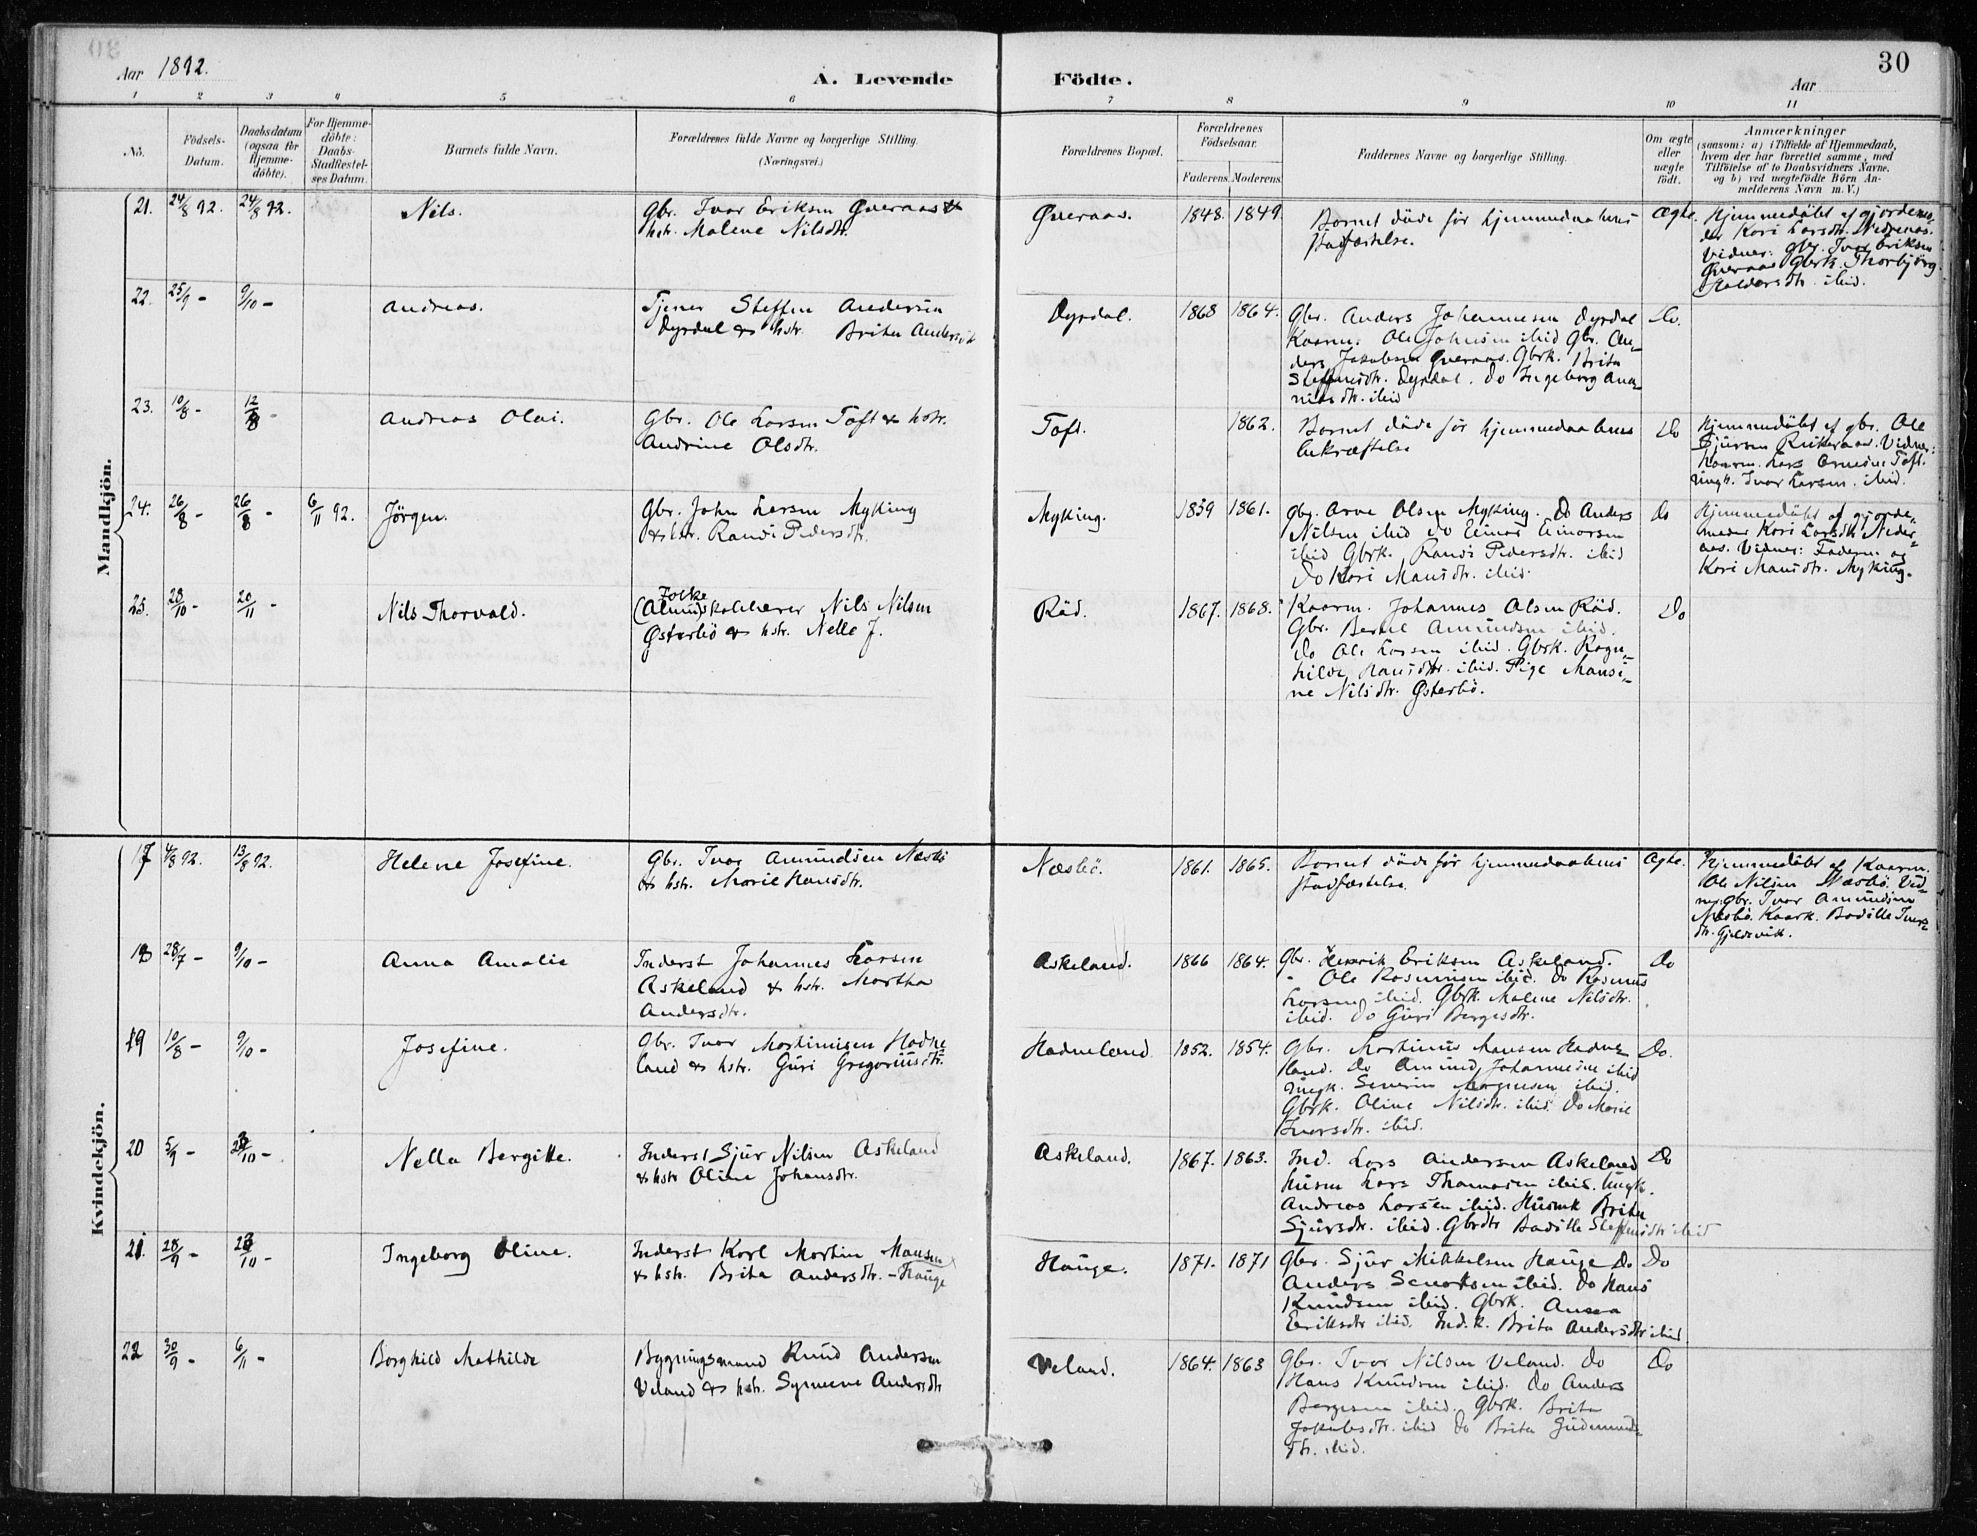 30
Aar 1892.
A. Levende Födte.
Aar
1 2 3 4 5 6 7 8 9 10 11
No.
Födsels-Datum.
Daabsdatum (ogsaa for Hjemme-döbte).
For Hjemme-döbte: Daabs-Stadfæstel-ses Datum.
Barnets fulde Navn.
Forældrenes fulde Navne og borgerlige Stilling. (Næringsvei.)
Forældrenes Bopæl.
Forældrenes Födselsaar.
Faderens. Moderens.
Faddernes Navne og borgerlige Stilling.
Om ægte eller uægte födt.
Anmærkninger
(saasom: a) i Tilfælde af Hjemmedaab,
hvem der har forrettet samme, med
Tilföielse af to Daabsvidners Navne,
og b) ved uægtefödte Börn An-
melderens Navn m. V.)
Mandkjön.
21. 24/8 92. 24/8 92. Nils.
Gbr. Ivar Eriksen Øveraas &
hstr. Malene Nilsdtr.
Øveraas. 1848. 1849.
Barnet döde för hjemmedaabens
stadfæstelse.
Ægte.
Hjemmedöbt af gjordemo-
der Kari Larsdtr. Nedreaas.
Vidner: gbr. Ivar Eriksen
Øveraas Gbrk. Thorbjörg
Haldorsdtr. ibid.
22. 25/9 - 9/10 - Andreas.
Tjener Steffen Andersen
Dyrdal & hstr. Brita Andersdtr
Dyrdal. 1868 1864.
Gbr. Anders Johannesen Dyrdal
Kaarm. Ole Johnsen ibid Gbr. An-
ders Jakobsen Øveraas. Gbrk. Brita
Steffensdtr. Dyrdal. Do Ingeborg Ana-
niasdtr. ibid
Do.
23. 10/8 - 12/8 - Andreas Olai.
Gbr. Ole Larsen Toft & hstr.
Andrine Olsdtr.
Toft. 1862.
Barnet döde för hjemmedaabens
bekræftelse
Do
Hjemmedöbt af gbr. Ole
Sjursen. Vidner:
Kaarm. Lars Toft.
Ungk. Ivar Larsen. ibid.
24. 26/8 - 26/8 - 6/11 92. Jörgen.
Gbr. John Larsen Myking
& hstr. Randi Pedersdtr.
Myking. 1839 1861.
Gbr. Arve Olsen Myking. Do Anders
Nilsen ibid Do Einar Einarsen
ibid Gbrk. Randi Pedersdtr. ibid
Do Kari Mansdtr. ibid.
Do
Hjemmedöbt af gjorde-
moder Kari Larsdtr Neder-
aas. Vidner: Faderen og
Kari Mansdtr. Myking.
25. 28/10 - 20/11 - Nils Thorvald.
Folke
(Almu)skolelærer Nils Nilsen
Østerbö & hstr. Nelle J.
Röd. 1867. 1868.
Kaarm. Johannes Olsen Röd.
Gbr. Bernt Amundsen ibid.
Do Ole Larsen ibid. Gbrk. Ragn-
hilde Hansdtr. ibid. Pige Mansi-
ne Nilsdtr. Østerbö.
Do
Kvindekjön.
17 4/8 92. 13/8 92. Helene Josefine.
Gbr. Ivar Amundsen Næsbö
& hstr. Marie Hansdtr.
Næsbö. 1861. 1865.
Barnet döde för hjemmedaabens
stadfæstelse.
Ægte.
Hjemmedöbt af Kaarm.
Ole Nilsen Næsbö. Vid-
ner: gbr. Ivar Amundsen
Næsbö. Kaark. Bodille Ivers-
dtr. Gjeldsvik.
18 28/7 - 9/10 - Anna Amalie
Inderst Johannes Larsen
Askeland & hstr. Martha
Andersdtr.
Askeland. 1866 1864.
Gbr. Henrik Eriksen Askeland.
" Ole Rasmusen ibid. Do Rasmus
Larsen ibid. Gbrk. Malene Nilsdtr.
ibid. Do Guri Bergesdtr.
Do
19 10/8 - 9/10 - Josefine.
Gbr. Ivar Martinusen Hadne
land & hstr. Guri Gregoriusdtr.
Hadneland 1852. 1854.
Gbr. Martinus Mansen Hadne-
land. Do Amund Johannesen ibid
Ungk. Severin Magnesen ibid.
Gbrk. Oline Nilsdtr. ibid. Do Marie
Iversdtr. ibid.
Do.
20 5/9 - 23/10 - Nella Bergitte.
Inderst Sjur Nilsen Askeland
& hstr Oline Johansdtr.
Askeland. 1867. 1863.
Ind. Lars Andersen Askeland
Husm Lars Thomasen ibid. Ungk.
Andreas Larsen ibid. Husmk Brita
Sjursdtr. ibid. Gbrdtr Bodille Steffensdtr ibid
Do
21. 28/9 - 23/10 - Ingeborg Oline.
Inderst Karl Martin Mansen
& hstr. Brita Andersdtr. - Hauge
Hauge. 1871. 1871
Gbr. Sjur Mikkelsen Hauge Do
Anders ibid. Do Hans
Knudsen ibid. Gbrk. Anna
Eriksdtr ibid. Ind.k. Brita Andersdtr ibid
Do
22 30/9 - 6/11 - Borghild Mathilde
Bygningsmand Knud Andersen
Veland & hstr. Synneve Andersdtr
Veland. 1864. 1863
Gbr. Ivar Nilsen Veland. Do
Hans Knudsen ibid. Do Anders
Bergesen ibid. Gbrk. Brita
Jakobsdtr. ibid Do Brita Gudmunds-
dtr. ibid.
Do